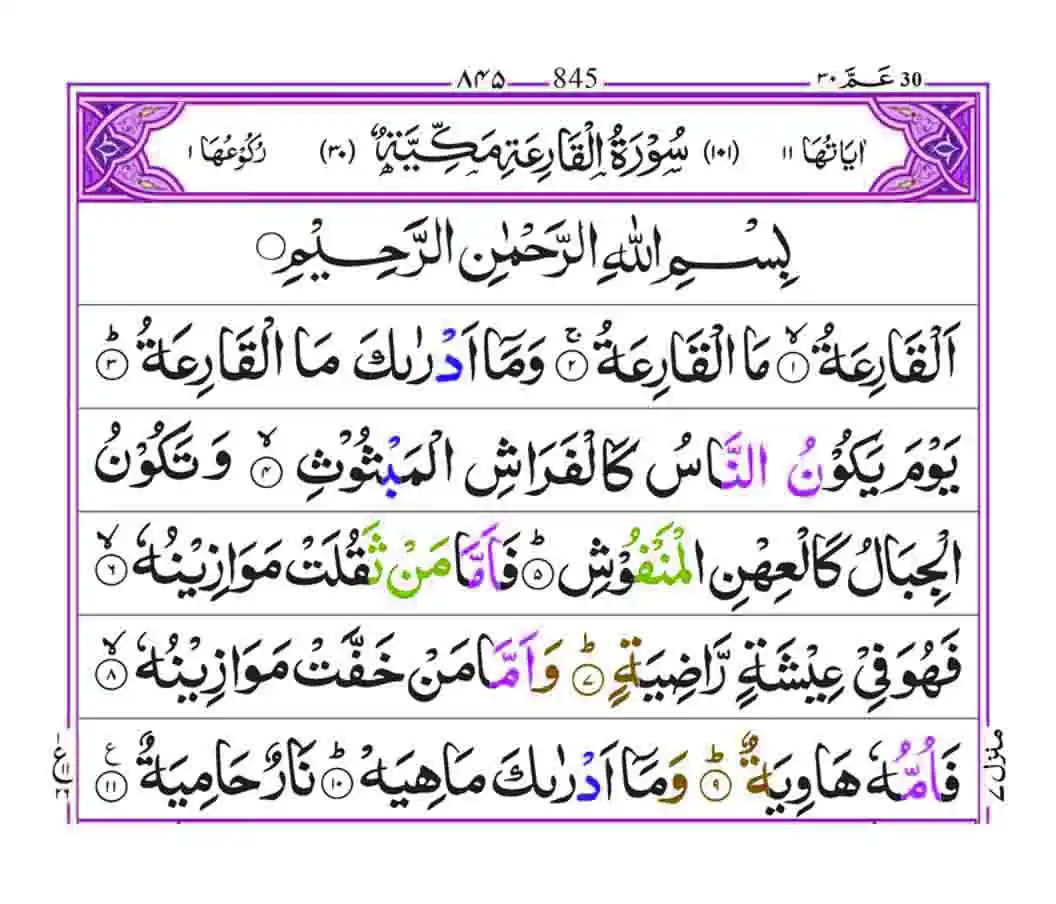 ۸۴۵ 845 عَمَّ ۳۰ 30
اٰيَاتُهَا ۱۱ (۱۰۱) سُوْرَةُ الْقَارِعَةِ مَكِّيَّةٌ (۳۰) رُكُوْعُهَا ۱
بِسْمِ اللّٰهِ الرَّحْمٰنِ الرَّحِيْمِ
اَلْقَارِعَةُ ۙ﴿۱﴾ مَا الْقَارِعَةُ ۚ﴿۲﴾ وَمَاۤ اَدْرٰىكَ مَا الْقَارِعَةُ ؕ﴿۳﴾
يَوْمَ يَكُوْنُ النَّاسُ كَالْفَرَاشِ الْمَبْثُوْثِ ۙ﴿۴﴾ وَتَكُوْنُ
الْجِبَالُ كَالْعِهْنِ الْمَنْفُوْشِ ؕ﴿۵﴾ فَاَمَّا مَنْ ثَقُلَتْ مَوَازِيْنُهٗ ۙ﴿۶﴾
فَهُوَ فِيْ عِيْشَةٍ رَّاضِيَةٍ ؕ﴿۷﴾ وَاَمَّا مَنْ خَفَّتْ مَوَازِيْنُهٗ ۙ﴿۸﴾
فَاُمُّهٗ هَاوِيَةٌ ؕ﴿۹﴾ وَمَاۤ اَدْرٰىكَ مَاهِيَهْ ؕ﴿۱۰﴾ نَارٌ حَامِيَةٌ ﴿۱۱﴾ ع
منزل ۷
ع ۱۱